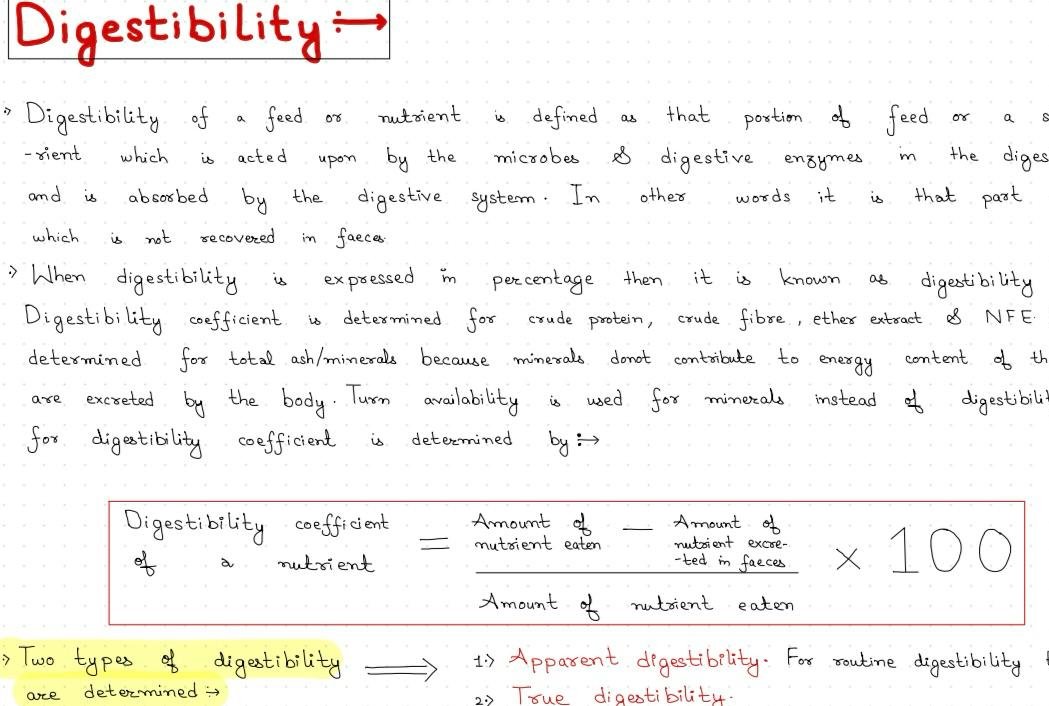 Digestibility :→
Digestibility of a feed or nutrient is defined as that portion of feed or a
-rient which is acted upon by the microbes & digestive enzymes in the
and is absorbed by the digestive system. In other words it is that part
which is not recovered in faeces
When digestibility is expressed in percentage then it is known as digestibility
Digestibility coefficient is determined for crude protein, crude fibre, ether extract & NFE.
determined for total ash/minerals because minerals donot contribute to energy content of
are excreted by the body. Turn availability is used for minerals instead of
for digestibility coefficient is determined by :→
Digestibility coefficient of a nutrient = Amount of nutrient eaten — Amount of nutrient excre--ted in faeces × 100
Amount of nutrient eaten
Two types of digestibility ⟹ 1.) Apparent digestibility. For routine digestibility
are determined :→ 2.) True digestibility.